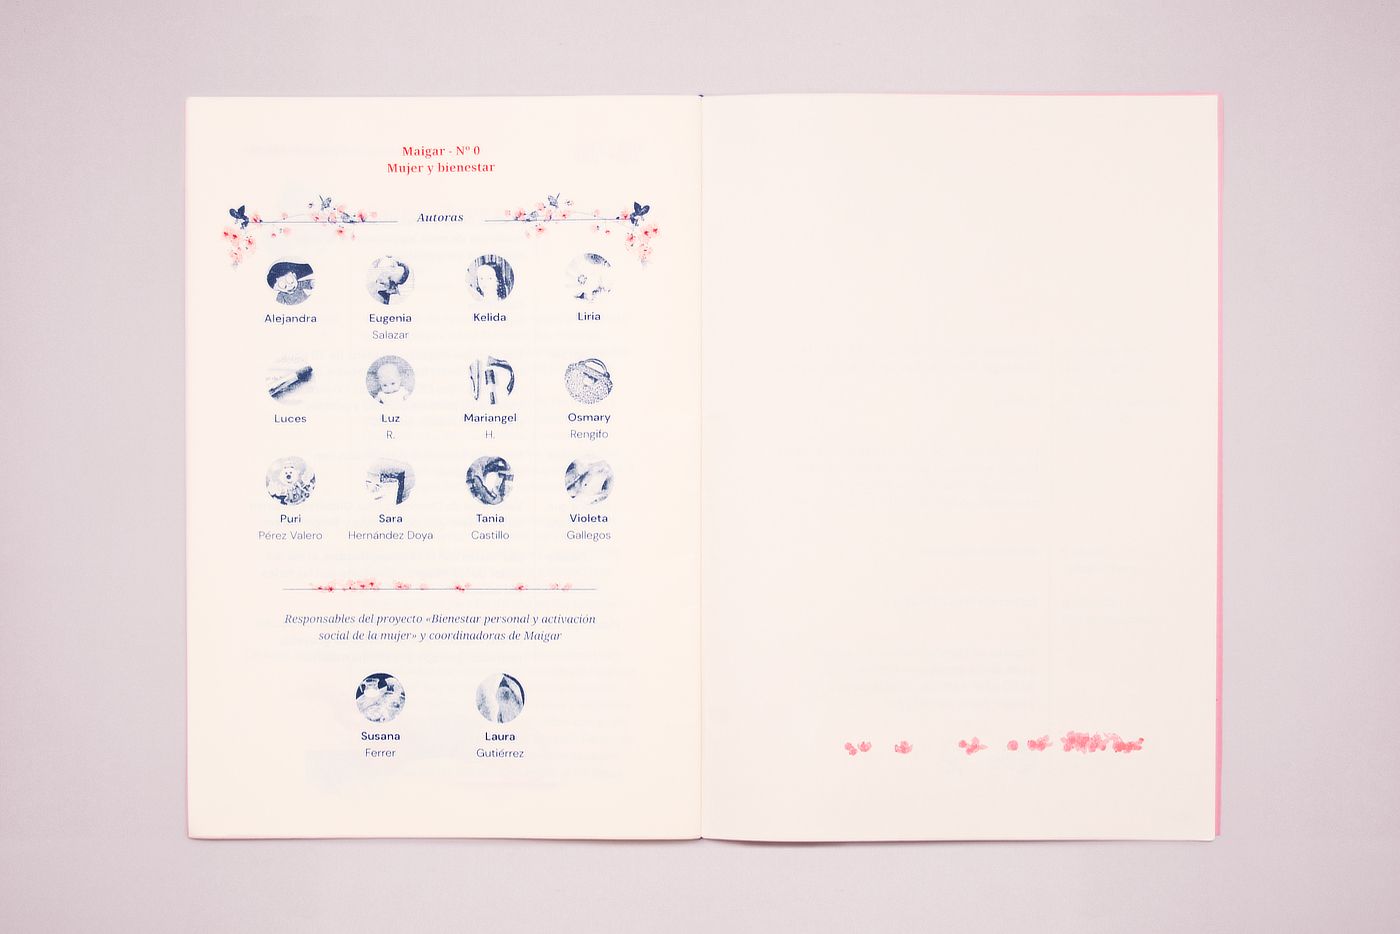 Maigar - Nº 0
Mujer y bienestar
Autoras
Alejandra
Eugenia
Salazar
Kelida
Liria
Luces
Luz
R.
Mariangel
H.
Osmary
Rengifo
Puri
Pérez Valero
Sara
Hernández Doya
Tania
Castillo
Violeta
Gallegos
Responsables del proyecto «Bienestar personal y activación
social de la mujer» y coordinadoras de Maigar
Susana
Ferrer
Laura
Gutiérrez